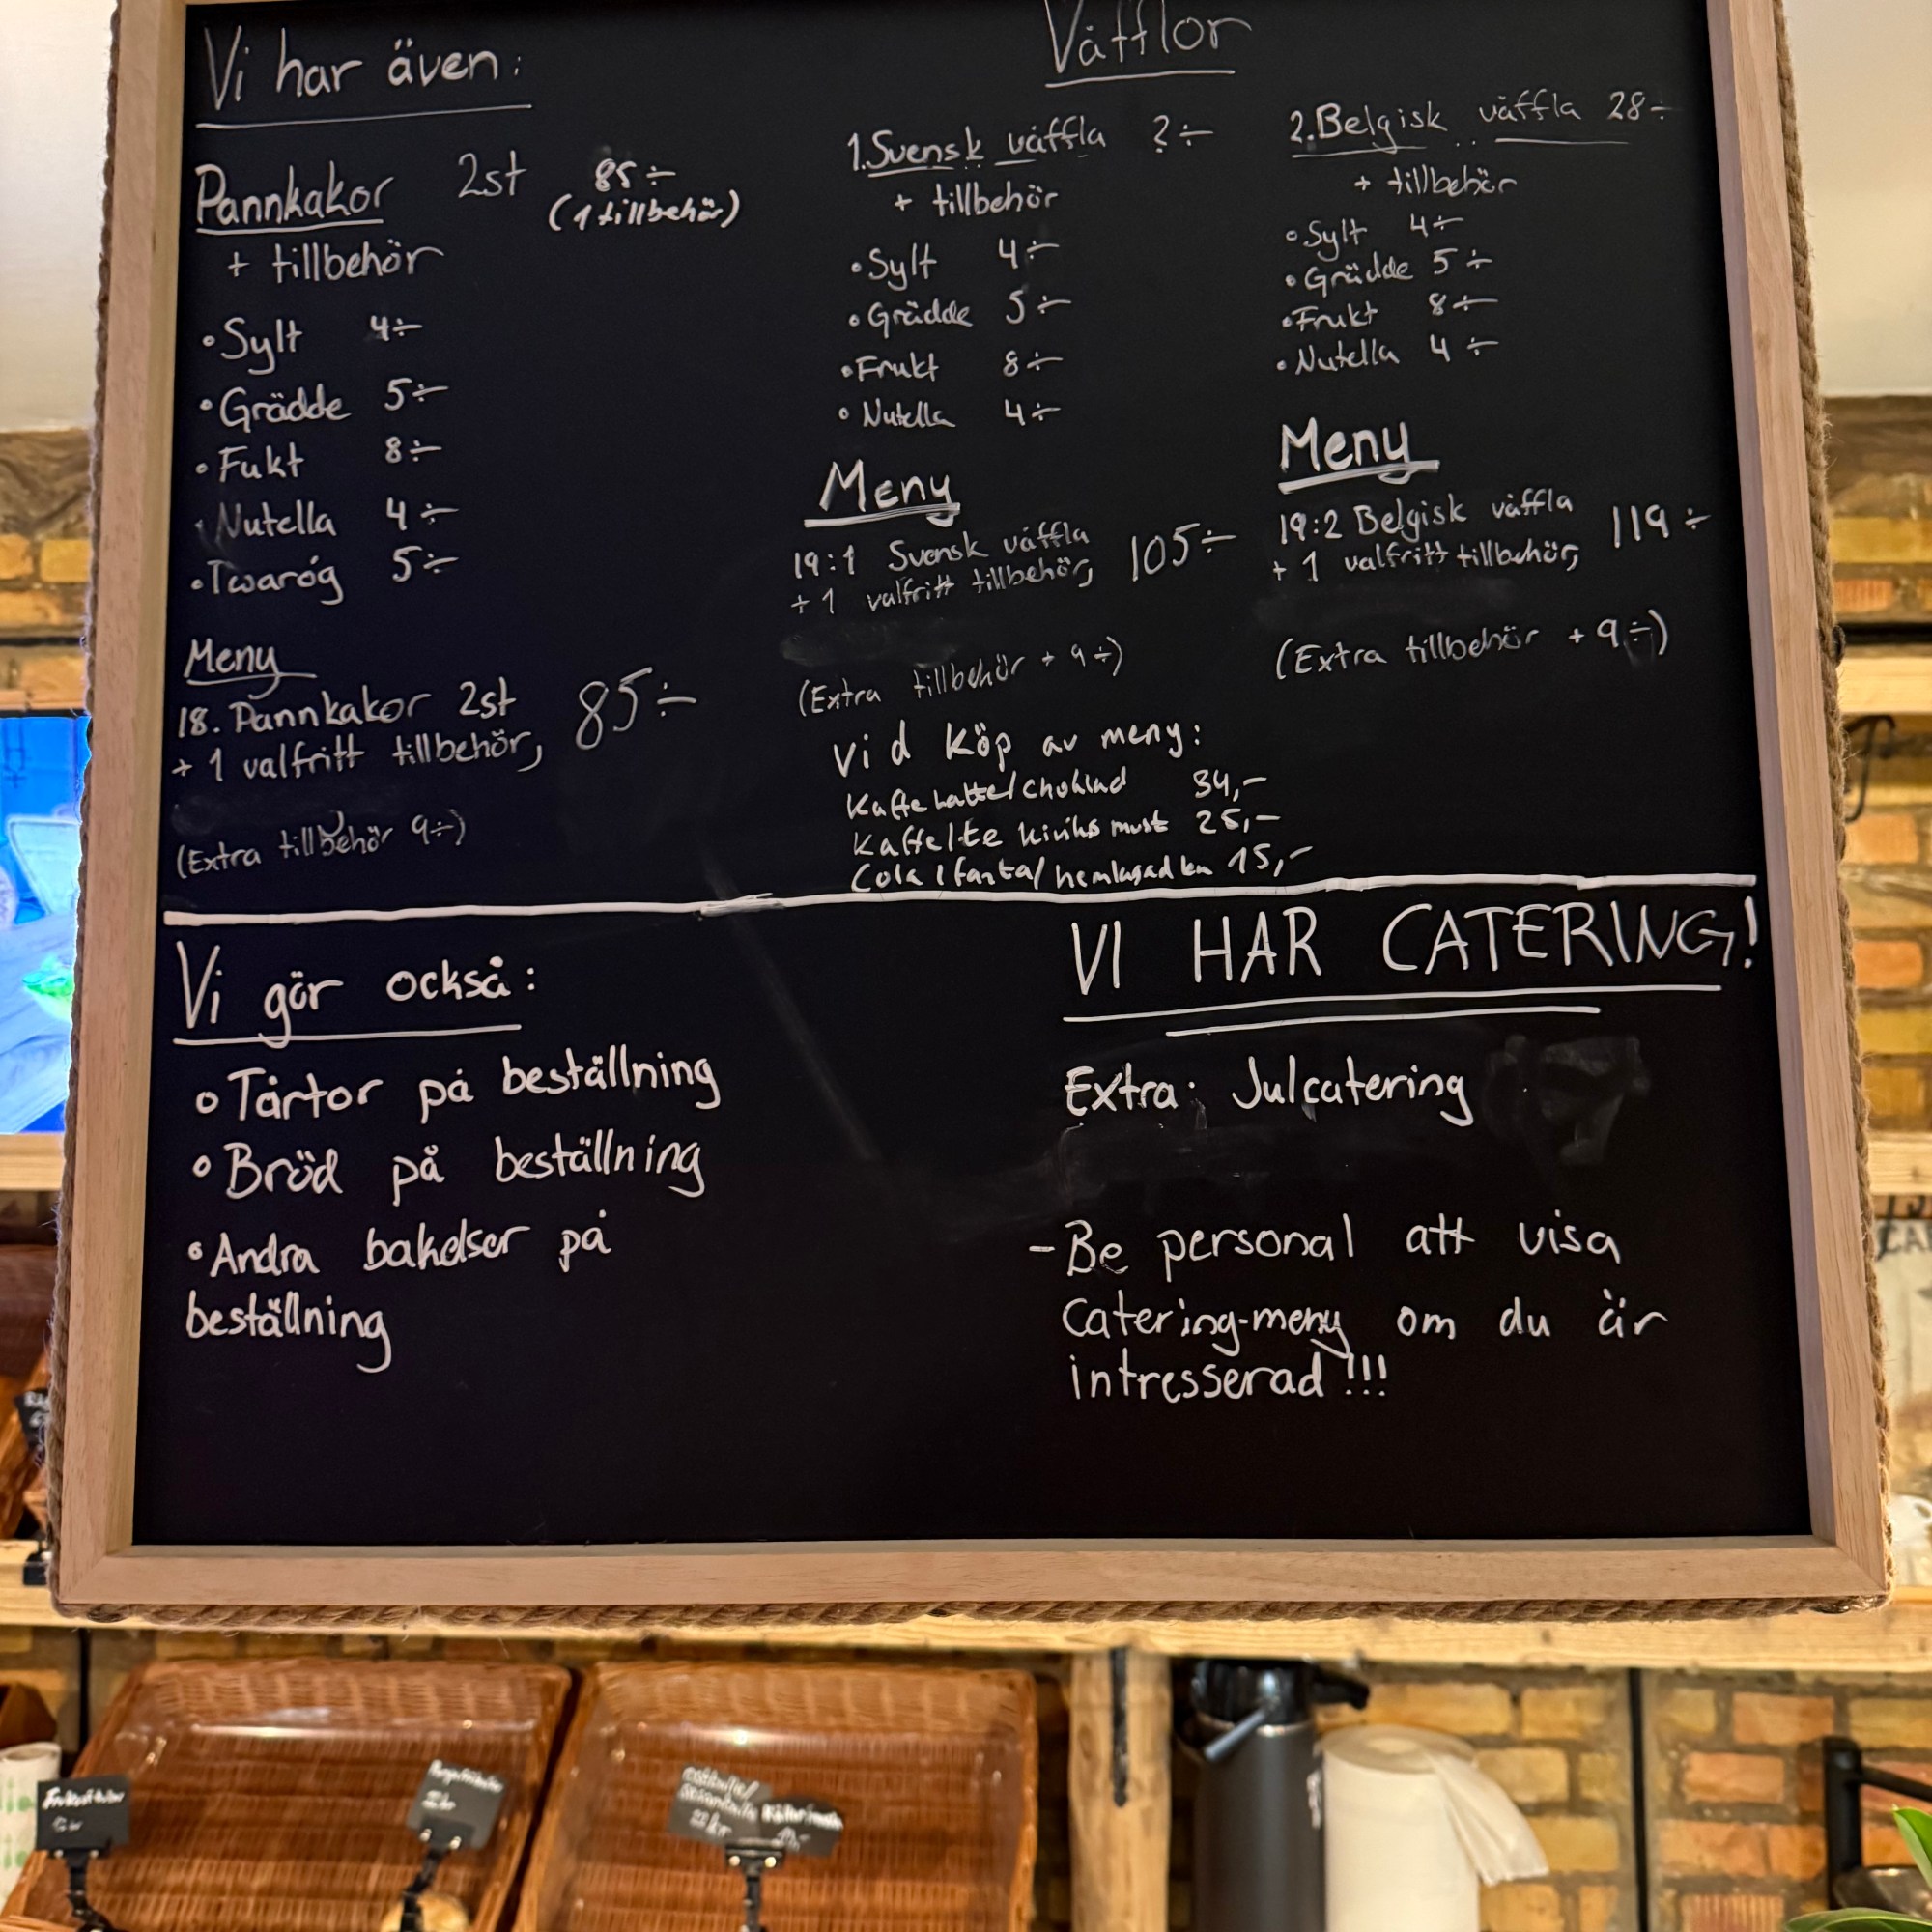 Vi har även:
Pannkakor 2st 85÷
(1 tillbehör)
+ tillbehör
• Sylt 4÷
• Grädde 5÷
• Fukt 8÷
• Nutella 4÷
• Twaróg 5÷
Meny
18. Pannkakor 2st
+ 1 valfritt tillbehör, 85÷
(Extra tillbehör 9÷)
Våfflor
1. Svensk våffla ?÷
+ tillbehör
• Sylt 4÷
• Grädde 5÷
• Frukt 8÷
• Nutella 4÷
Meny
19:1 Svensk våffla
+ 1 valfritt tillbehör, 105÷
(Extra tillbehör + 9÷)
2. Belgisk våffla 28÷
+ tillbehör
• Sylt 4÷
• Grädde 5÷
• Frukt 8÷
• Nutella 4÷
Meny
19:2 Belgisk våffla
+ 1 valfritt tillbehör, 119÷
(Extra tillbehör + 9÷)
Vid köp av meny:
Kaffe Latte/choklad 34,-
Kaffe/te kiviks must 25,-
Cola/fanta/hemlagad 15,-
Vi gör också:
• Tårtor på beställning
• Bröd på beställning
• Andra bakelser på
beställning
VI HAR CATERING!
Extra: Julcatering
- Be personal att visa
Catering-meny om du är
intresserad!!!